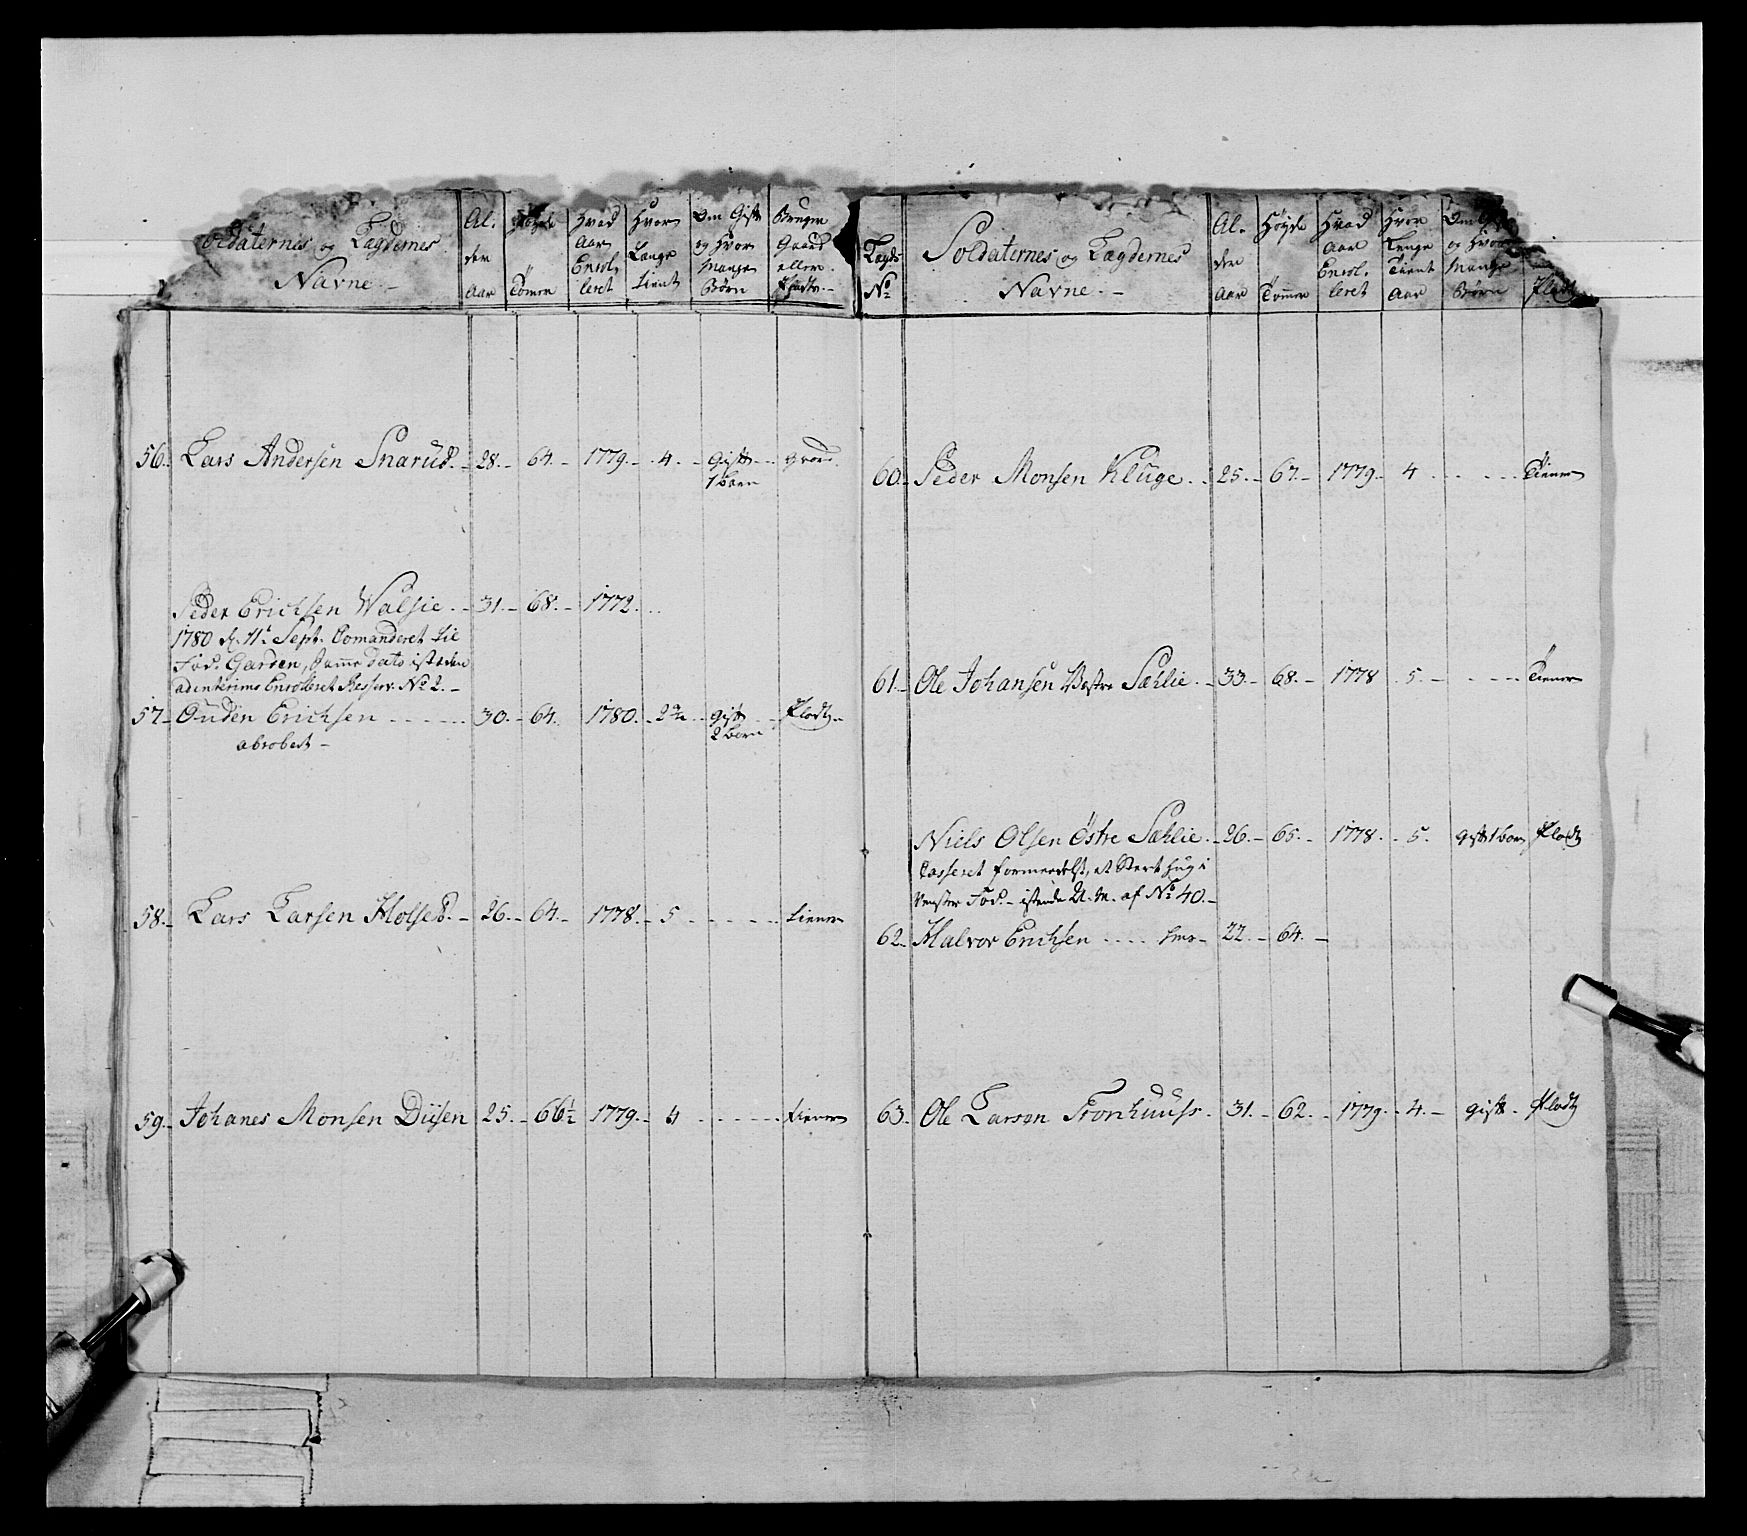 oldaternes og Lægdernes Navne.
Al. der Aar
Tomer
Hvad Aar Enrol. leret
Hvor Længe tient
Om Gift og Hvor Mange Børn
Bruger Gaard eller Pladtz
56. Lars Andersen Snarud. 28. 64. 1779. 4. Gift Gaard.
1 barn
Peder Erichsen Walsie. 31. 68. 1772.
1780 d. 11t Sept. Comanderet til
Fod. Garden, Samme dato isteden
ad interims Enrolleret Reserv. No 2.
57. Guden Erichsen 30. 64. 1780. gift Pladtz.
2 børn
58. Lars Larsen Holsed. 26. 64. 1778. 5 tiener
59. Johanes Monsen Diisen 25. 66½ 1779. 4 tiener
Lægds No
Soldaternes og Lægdernes Navne.
Al. der Aar
Høyde Tommer
Hvad Aar Enrol. leret
Hvor Lenge Tient Aar
Om Gift og Hvor Mange Børn
Pladtz
60. Peder Monsen Kluge. 25. 67. 1779. 4 Tiener
61. Ole Johansen Vestre Sæhlie. 33. 68. 1778 5. Tiener
Niels Olsen Østre Sæhlie. 26. 65. 1778. 5. gift 1 barn Pladtz
Casseret formedelst, et Stort hug i
Venster Fod. istæden N. M. af No 40.
62. Halvor Erichsen 22. 64.
63. Ole Larsen Tronhuuss. 31. 62. 1779. 4. gift. Pladtz